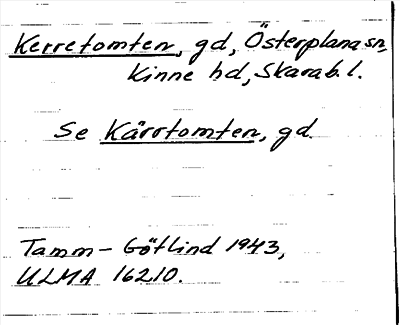 Kerretomten, gd, Österplana sn,
Kinne hd, Skarab. l.
Se Kärrtomten, gd.
Tamm-Götlind 1943,
ULMA 16210.